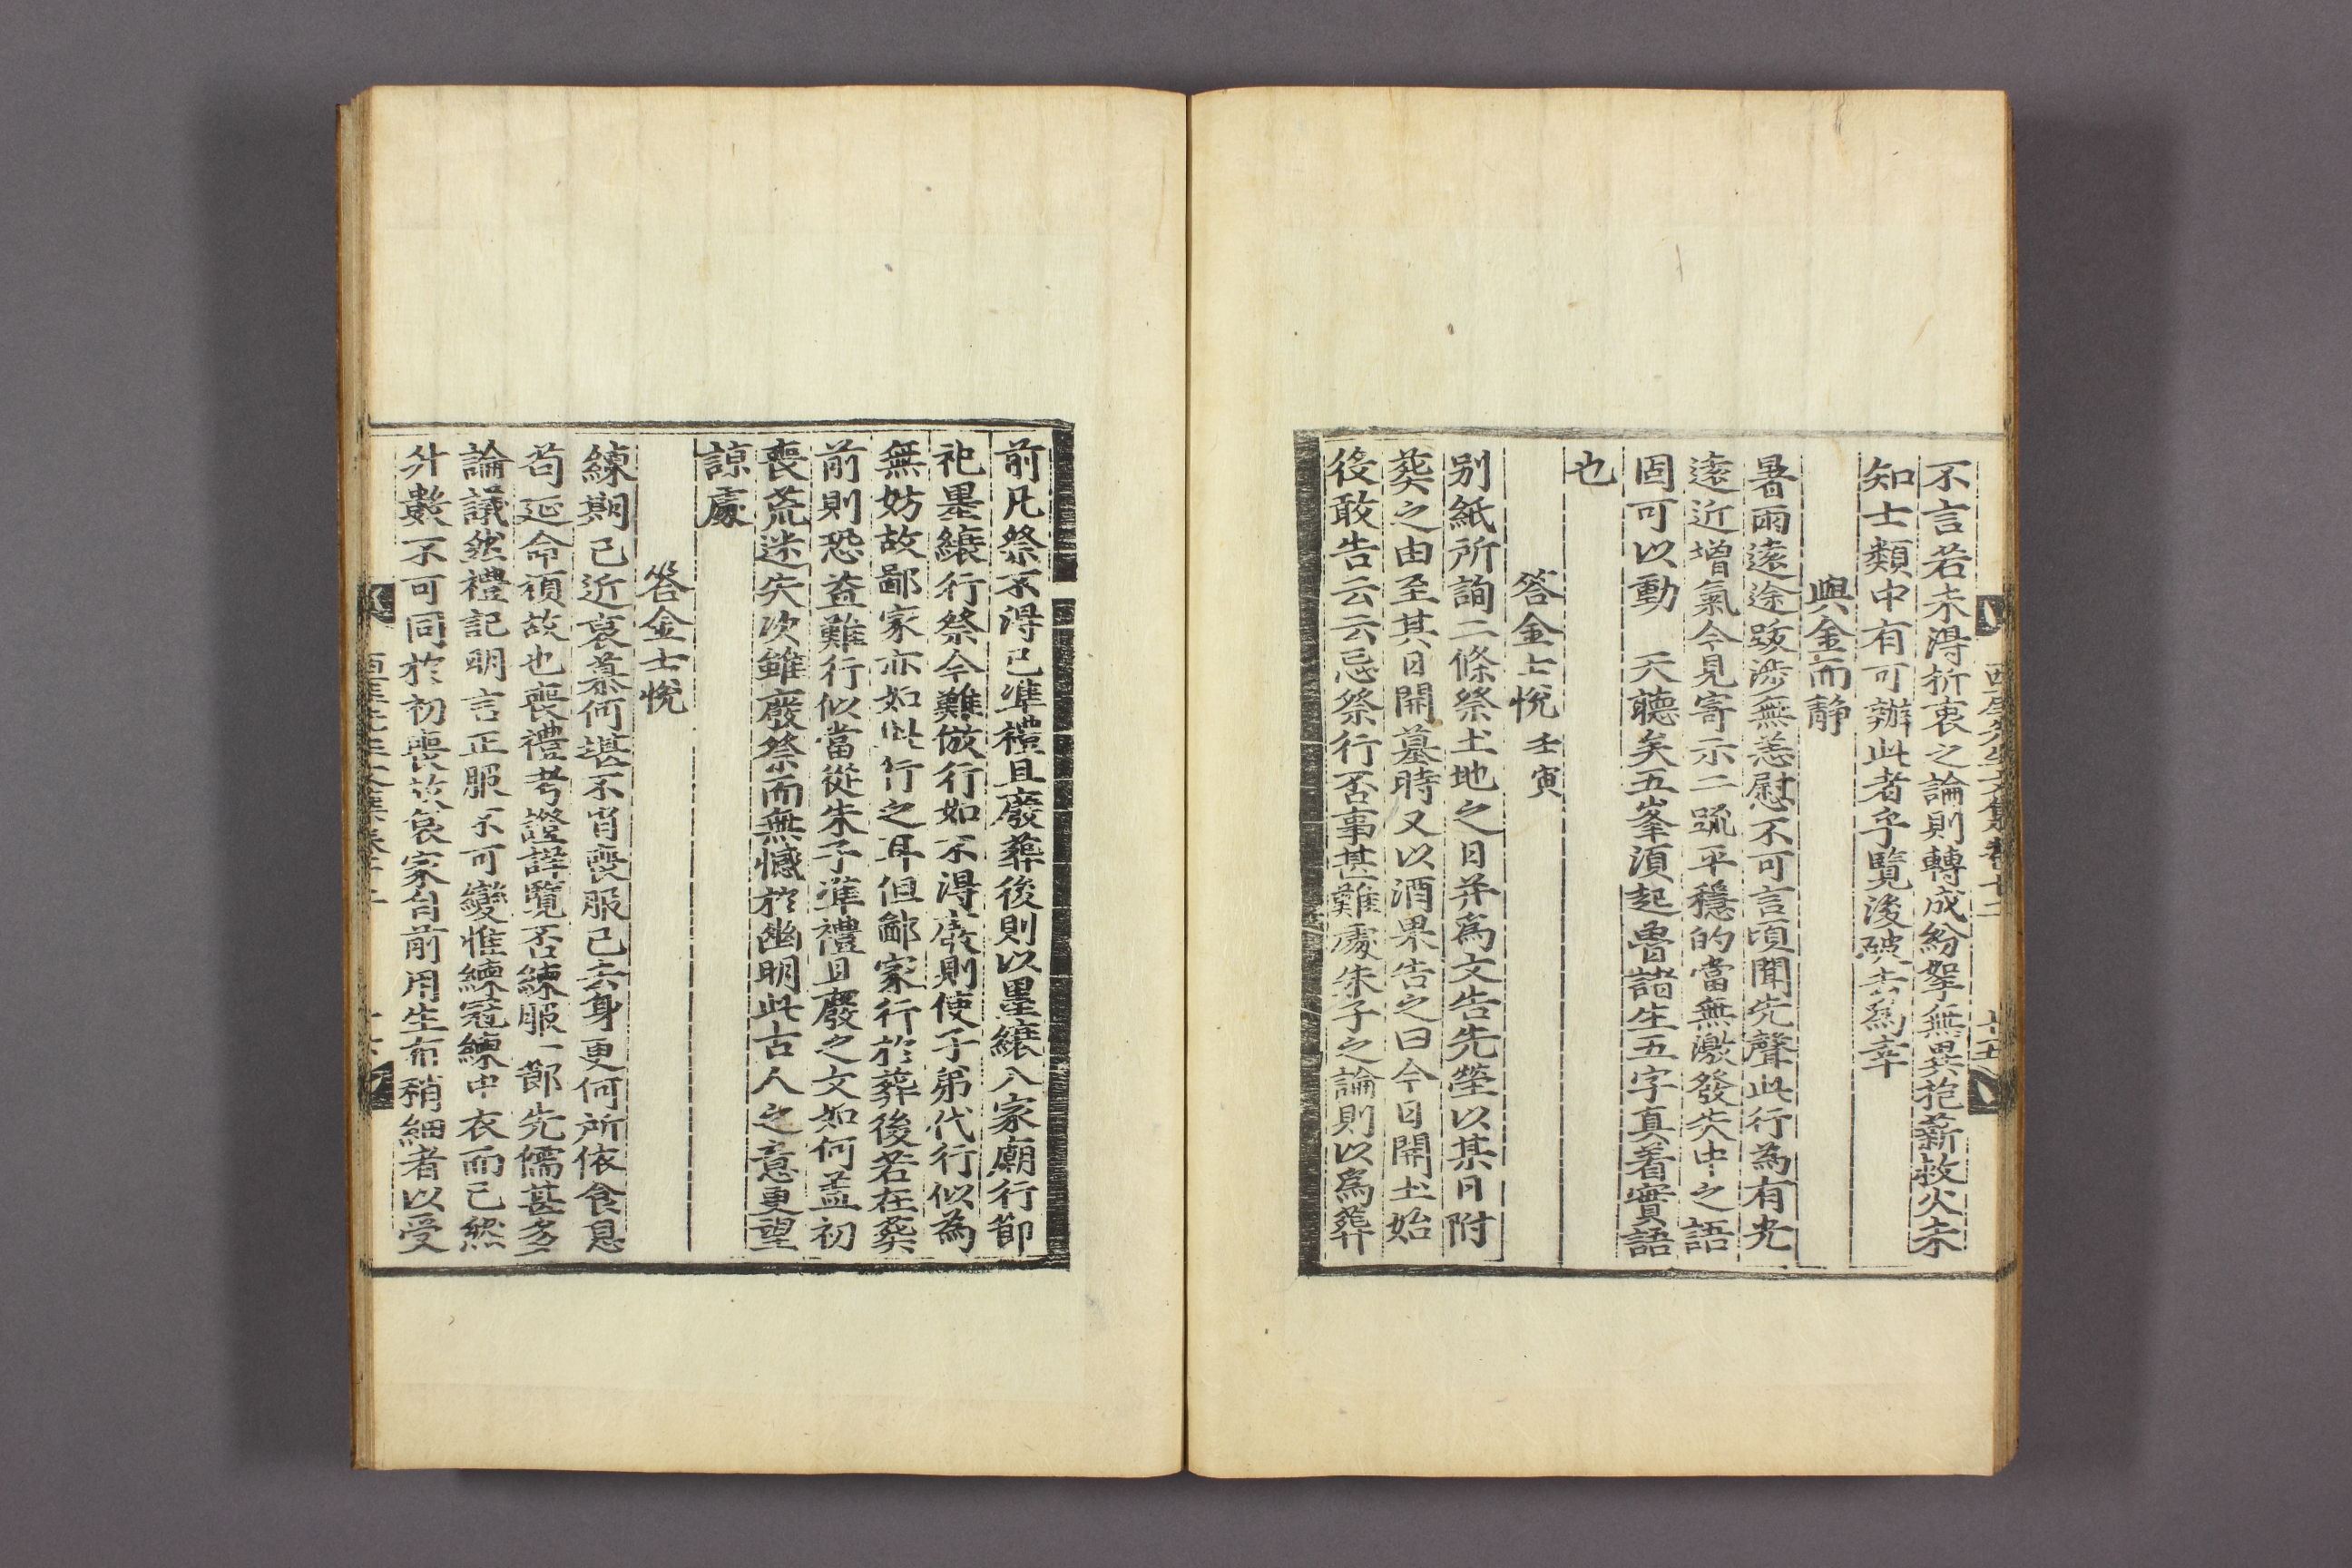 不言若未得折衷之論則轉成紛拏無異抱薪救火未
知士類中有可辦此者乎覽後破去爲幸
與金而静
暑雨遠途跋渉無恙慰不可言頃聞先聲此行為有光
遠近增氣今見寄示二䟽平穩的當無激發失中之語
固可以動 天聽矣五峯湏起魯諸生五字真着實語
也
答金士悅 壬寅
别紙所詢二條祭土地之日并爲文告先塋以某日附
葬之由至其日開墓時又以酒果告之曰今日開土始
役敢告云云忌祭行否事甚難處朱子之論則以爲葬
前凡祭不得已準禮且廢葬後則以墨縗入家廟行節
祀墨縗行祭今難倣行如不得廢則使子弟代行似為
無妨故鄙家亦如此行之耳但鄙家行於葬後若在葬
前則恐益難行似當從朱子準禮且廢之文如何盖初
喪荒迷失次雖廢祭而無憾於幽明此古人之意更望
諒處
答金士悅
練期已近哀慕何堪不肖喪服已去身更何所依食息
苟延命頑故也喪禮考證詳覽否練服一節先儒甚多
論議然禮記明言正服不可變惟練冠練中衣而已然
升數不可同於初喪故哀家自前用生布稍細者以受